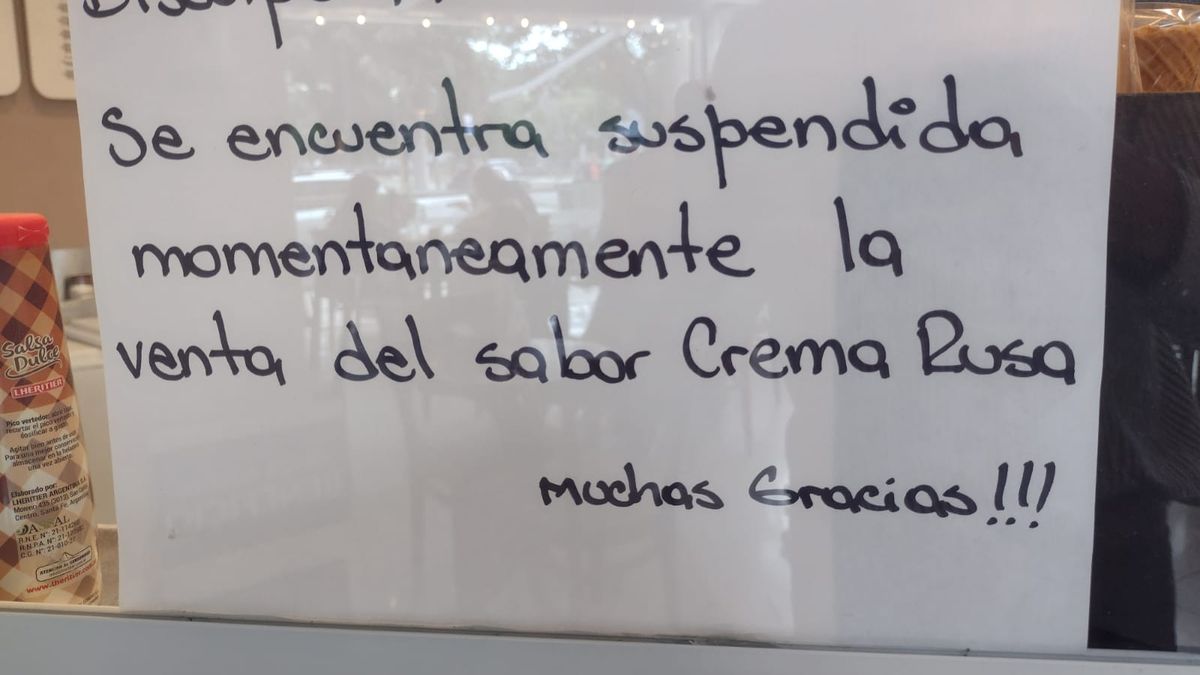 Se encuentra suspendida
momentaneamente la
venta del sabor Crema Rusa
Muchas Gracias!!!
Salsa
Dulce
LHERITIER
Pico vertedor:
Agitar bien antes de
Para una mejor
una vez abierto.
Elaborado por:
LHERITIER ARGENTINA S.A.
Centro, Santa Fe,
www.lheritier.com